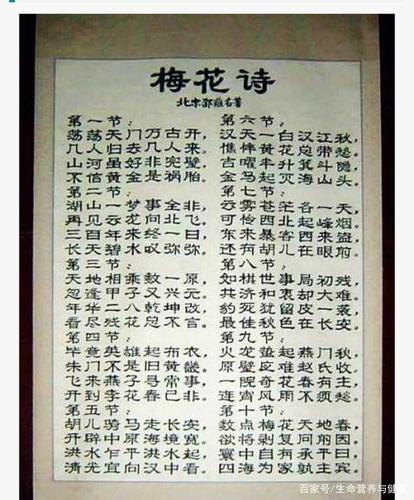 梅花诗
北宋邵雍名著
第一节：
荡荡天门万古开，
几人归去几人来。
山河虽好非完璧，
不信黄金是祸胎。
第二节：
湖山一梦事全非，
再见云龙向北飞。
三百年来终一日，
长天碧水叹弥弥。
第三节：
天地相乘数一原，
忽逢甲子又兴元。
年华二八乾坤改，
看尽残花总不言。
第四节：
毕竟英雄起布衣，
朱门不是旧黄畿。
飞来燕子寻常事，
开到李花春已非。
第五节：
胡儿骑马走长安，
开辟中原海境宽。
洪水乍平洪水起，
清光宜向汉中看。
第六节：
汉天一白汉江秋，
憔悴黄花总带愁。
吉曜半升箕斗隐，
金马起灭海山头。
第七节：
云雾苍茫各一天，
可怜西北起峰烟。
东来暴客西来盗，
还有胡儿在眼前。
第八节：
如棋世事局初残，
共济和衷却大难。
豹死犹留皮一袭，
最佳秋色在长安。
第九节：
火龙蛰起燕门秋，
原璧应难赵氏收。
一院奇花春有主，
连宵风雨不须愁。
第十节：
数点梅花天地春，
欲将剥复问前因。
寰中自有承平日，
四海为家孰主宾。
百家号/生命营养与健